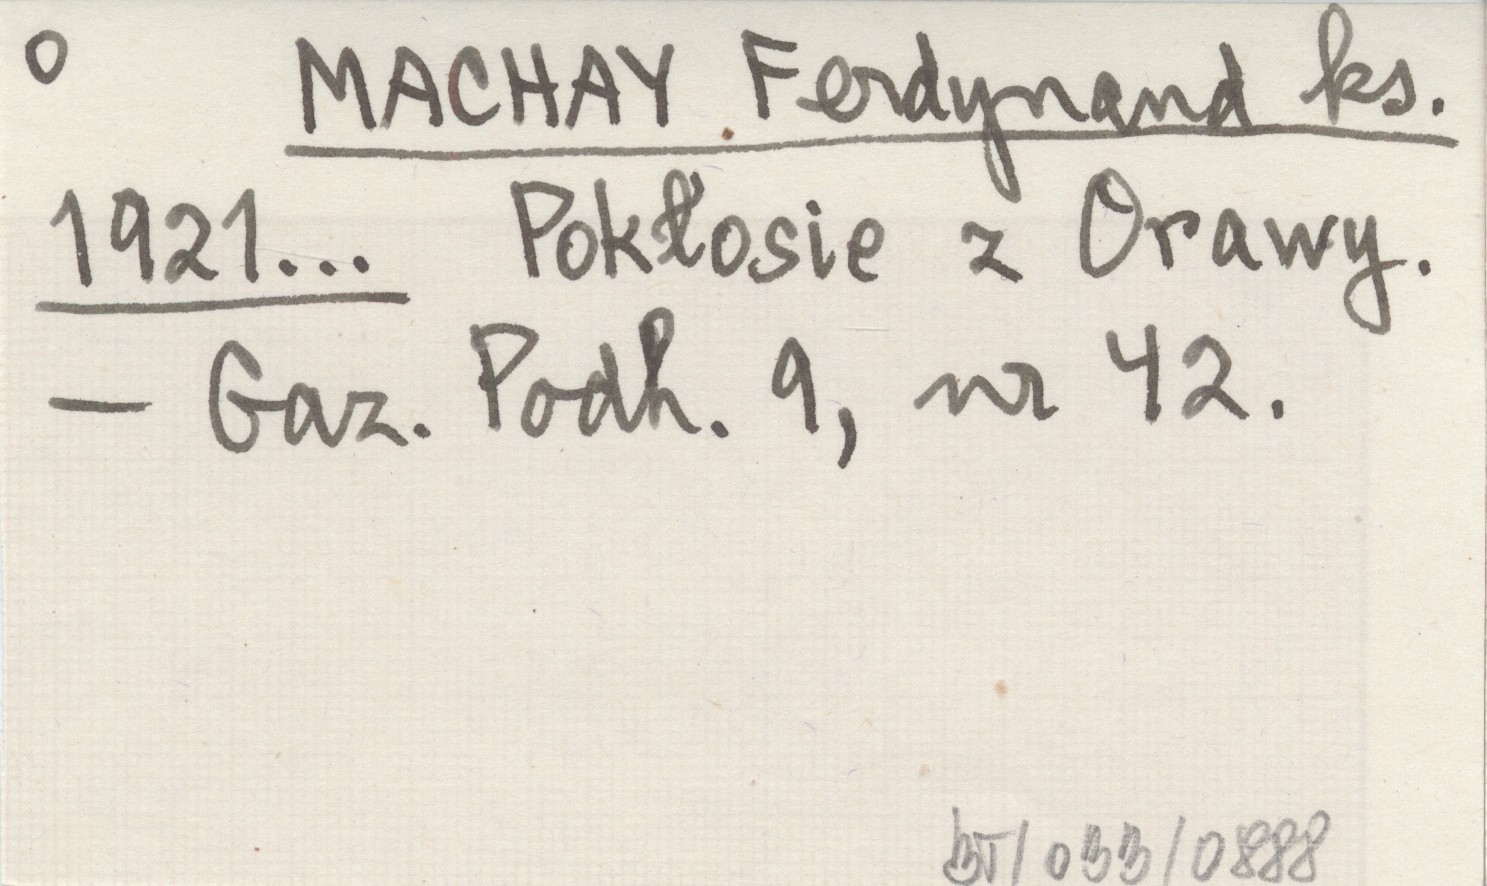 O MACHAY Ferdynand ks.
1921... Pokłosie z Orawy.
— Gaz. Podh. 9, nr 42.
BT/033/0888